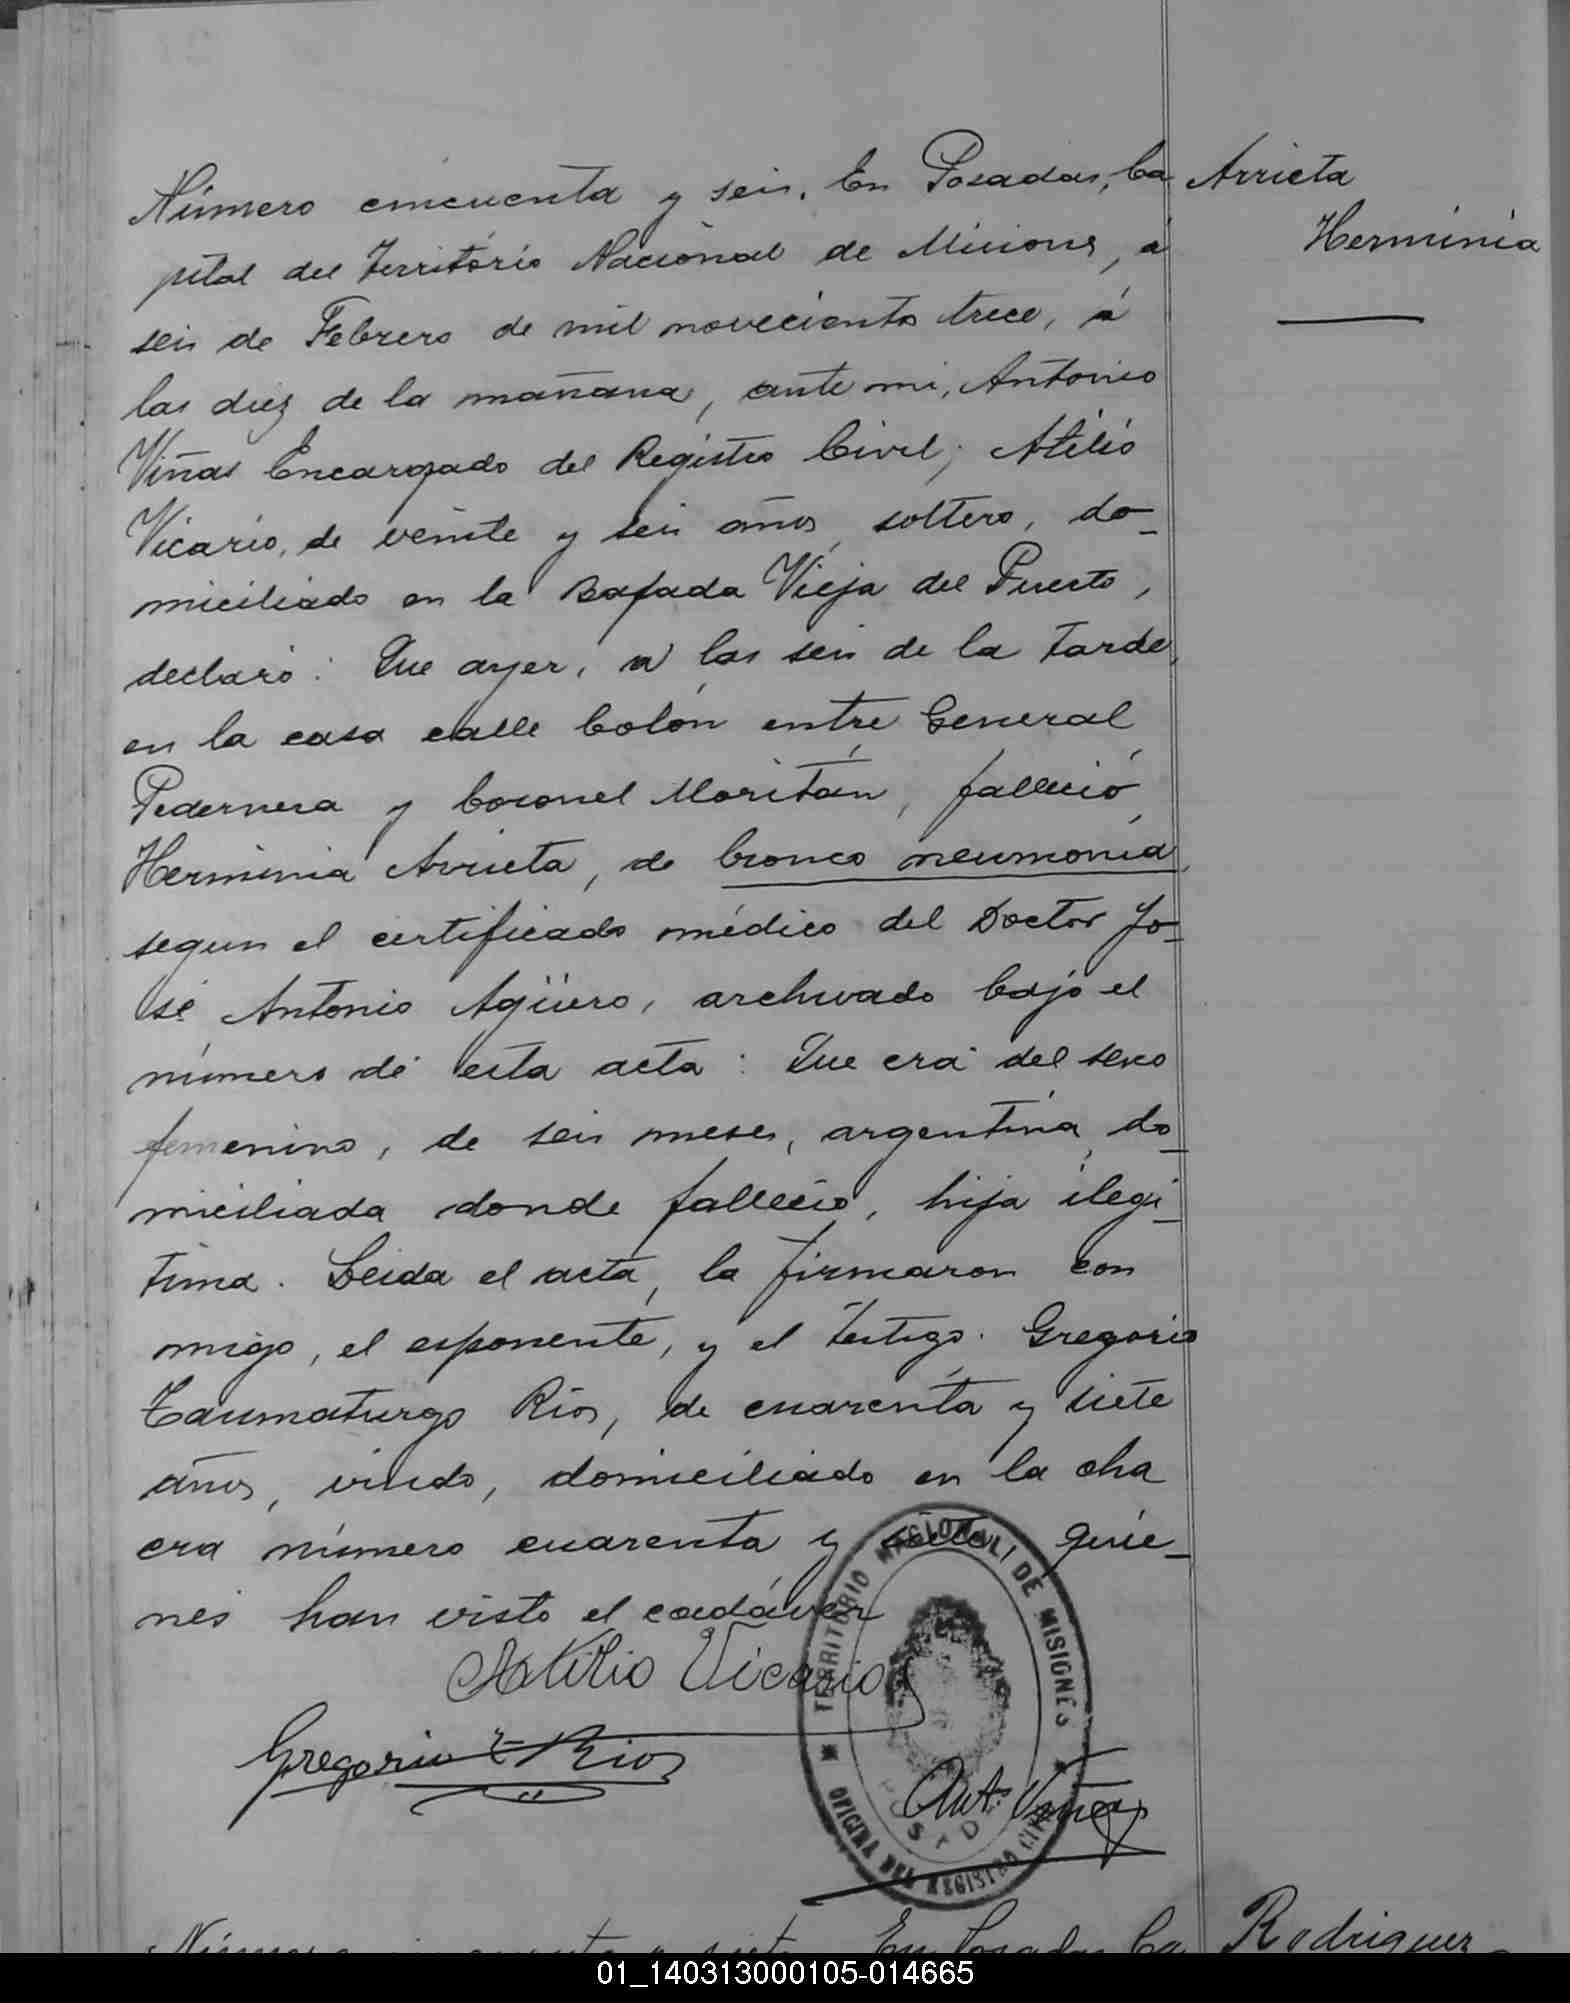 Número cincuenta y seis. En Posadas, Ca
pital del Territorio Nacional de Misiones, á
seis de Febrero de mil novecientos trece, á
las diez de la mañana, ante mi, Antonio
Viñas Encargado del Registro Civil; Atilio
Vicario, de veinte y seis años, soltero, do-
miciliado en la Bajada Vieja del Puerto,
declaró: Que ayer, a las seis de la tarde,
en la casa calle Colón entre General
Pedernera y Coronel Moritán, falleció
Herminia Arrieta, de bronco neumonia,
segun el certificado médico del Doctor Jo-
sé Antonio Agüero, archivado bajo el
número de esta acta: Que era del sexo
femenino, de seis meses, argentina, do-
miciliada donde falleció, hija ilegi-
tima. Leida el acta, la firmaron con
migo, el esponente, y el testigo. Gregorio
Taumaturgo Rios, de cuarenta y siete
años, viudo, domiciliado en la cha
cra número cuarenta y siete, quie-
nes han visto el cadáver
Atilio Vicario
Gregorio T Rios
Ant. Viñas
TERRITORIO NACIONAL DE MISIONES
OFICINA DEL REGISTRO CIVIL
POSADAS
Arrieta
Herminia
Número cincuenta y siete. En Posadas, Ca
Rodriguez
01_140313000105-014665